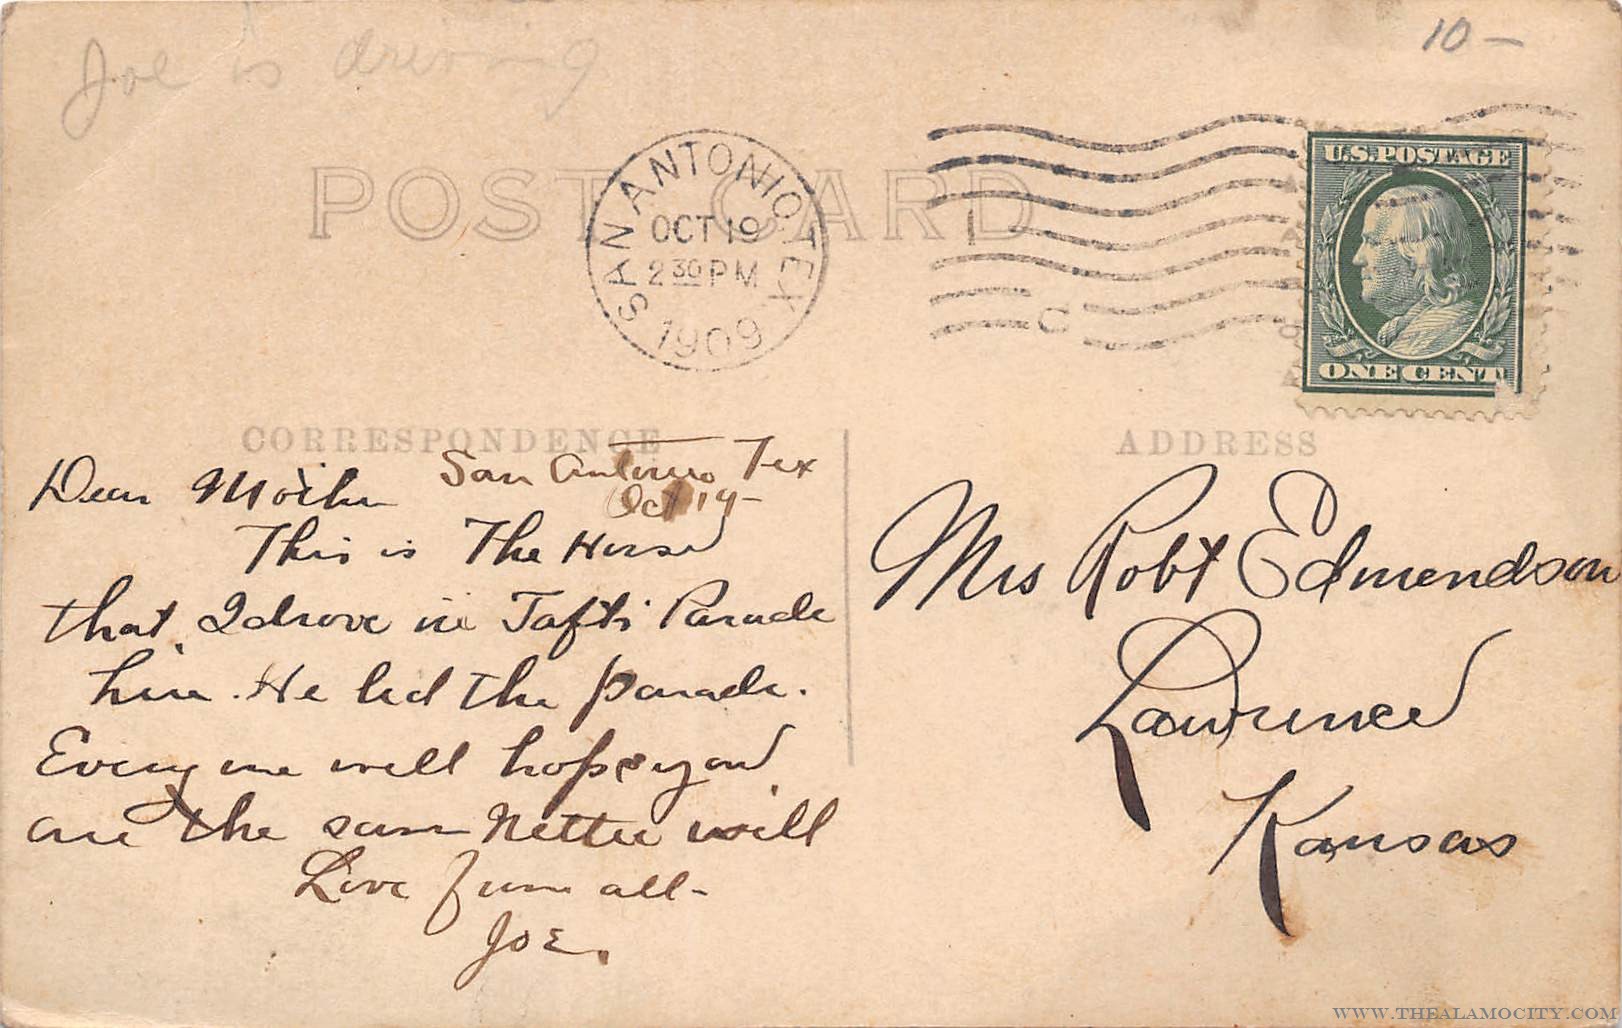 Joe is driving
10 —
POST CARD
SAN ANTONIO, TEX.
OCT 19
2 30 PM
1909
U.S. POSTAGE
ONE CENT
CORRESPONDENCE
ADDRESS
San Antonio Tex
Oct 19 -
Dear Mother
This is The Horse
that I drove in Taft's Parade
here. He led the parade.
Every one well hope you
are the same Nettie will
Love from all -
Joe.
Mrs Robt Edmendson
Lawrence
Kansas
WWW.THEALAMOCITY.COM